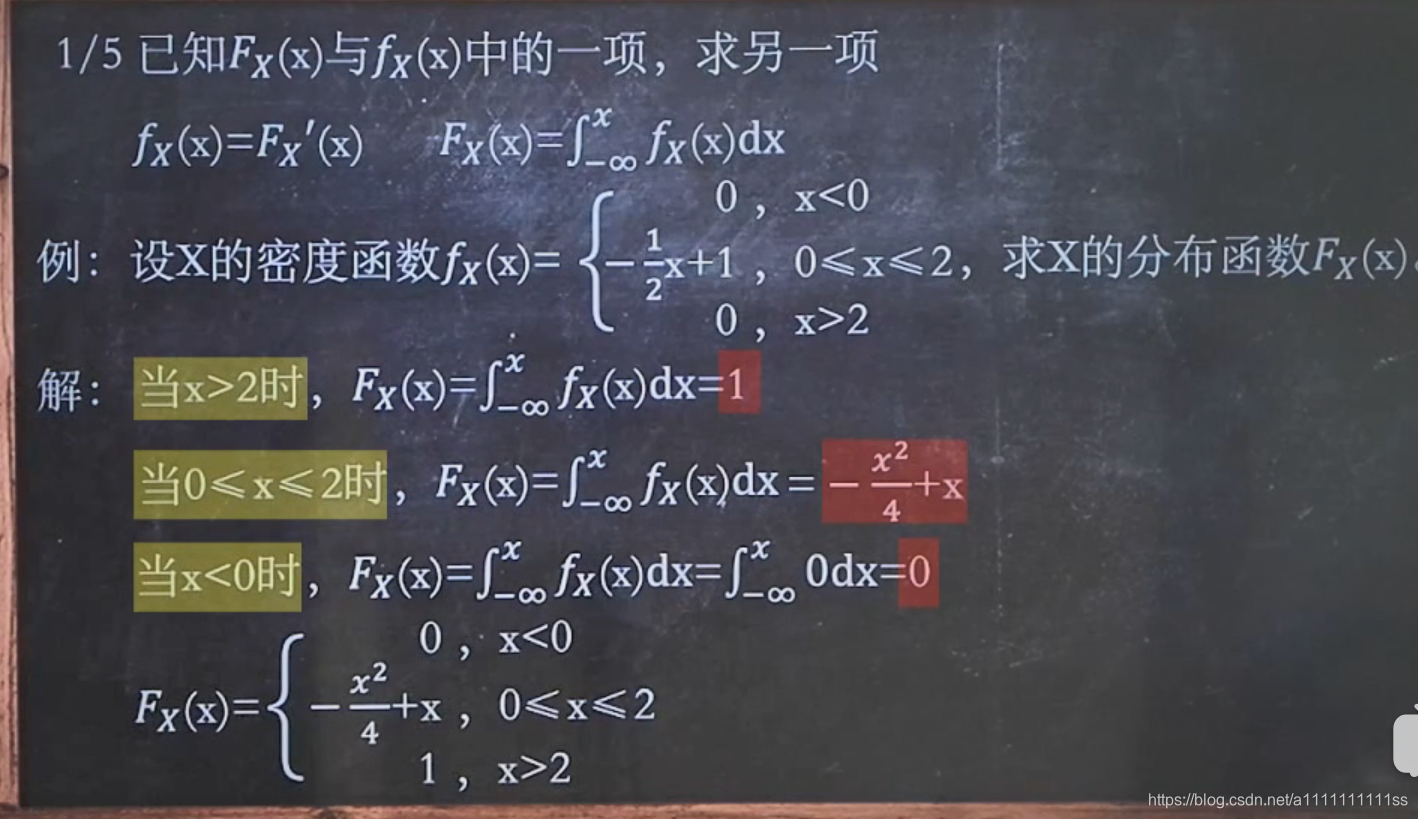 1/5 已知F_X(x)与f_X(x)中的一项，求另一项
f_X(x)=F_X′(x) F_X(x)=∫_{-∞}^{x} f_X(x)dx
例：设X的密度函数f_X(x)= { 0 , x<0
-\frac{1}{2}x+1 , 0⩽x⩽2，求X的分布函数F_X(x)。
0 , x>2
解：当x>2时，F_X(x)=∫_{-∞}^{x} f_X(x)dx=1
当0⩽x⩽2时，F_X(x)=∫_{-∞}^{x} f_X(x)dx=-\frac{x^2}{4}+x
当x<0时，F_X(x)=∫_{-∞}^{x} f_X(x)dx=∫_{-∞}^{x} 0dx=0
F_X(x)= { 0 , x<0
-\frac{x^2}{4}+x , 0⩽x⩽2
1 , x>2
https://blog.csdn.net/a1111111111ss